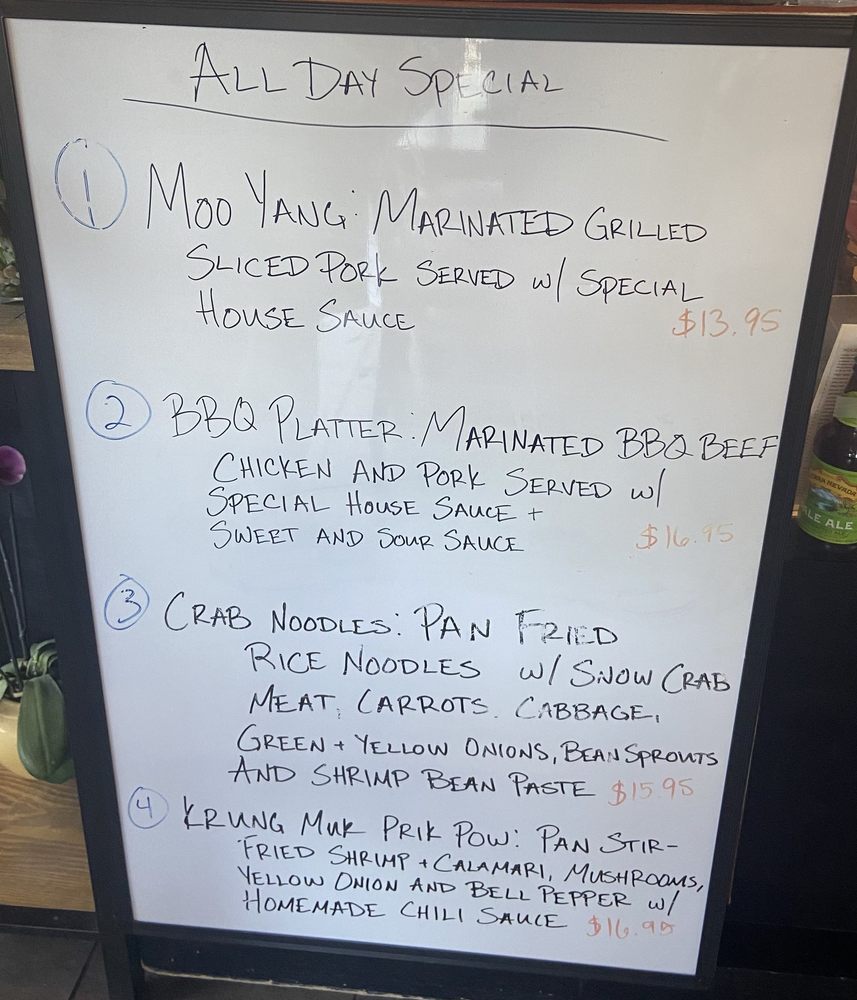 ALL DAY SPECIAL
1 MOO YANG: MARINATED GRILLED
SLICED PORK SERVED W/ SPECIAL
HOUSE SAUCE $13.95
2 BBQ PLATTER: MARINATED BBQ BEEF
CHICKEN AND PORK SERVED W/
SPECIAL HOUSE SAUCE +
SWEET AND SOUR SAUCE $16.95
3 CRAB NOODLES: PAN FRIED
RICE NOODLES W/ SNOW CRAB
MEAT, CARROTS. CABBAGE,
GREEN + YELLOW ONIONS, BEAN SPROUTS
AND SHRIMP BEAN PASTE $15.95
4 KRUNG MUK PRIK POW: PAN STIR-
FRIED SHRIMP + CALAMARI, MUSHROOMS,
YELLOW ONION AND BELL PEPPER W/
HOMEMADE CHILI SAUCE $16.95
NEVADA
ALE ALE